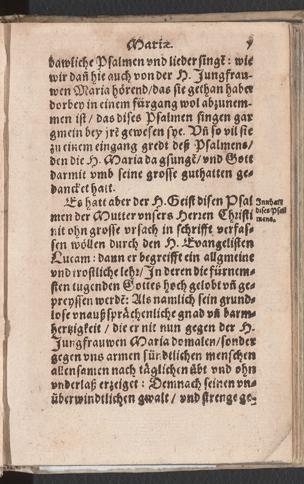 Mariæ. 9
bawliche Psalmen vnd lieder singẽ: wie
wir dañ hie auch von der H. Jungfrau-
wen Maria hörend/das sie gethan haber
dorbey in einem fürgang wol abzunem-
men ist/ das dises Psalmen singen gar
gmein bey jrẽ gewesen sye. Vñ so vil sie
zu einem eingang gredt deß Psalmens/
den die H. Maria da gsungẽ/vnd Gott
darmit vmb seine grosse guthatten ge-
dancket hatt.
Es hatt aber der H. Geist disen Psal
men der Mutter vnsers Herren Christi
nit ohn grosse vrsach in schrifft verfas-
sen wöllen durch den H. Evangelisten
Lucam: dann er begreifft ein allgmeine
vnd trostliche lehr/ In deren die fürnem-
sten tugenden Gottes hoch gelobt vñ ge-
preyssen werdẽ: Als namlich sein grund-
lose vnaußsprächenliche gnad vñ barm-
hertzigkeit / die er nit nun gegen der H.
Jungfrauwen Maria domalen/sonder
gegen vns armen sündtlichen menschen
allensamen nach täglichen übt vnd ohn
vnderlaß erzeiget: Demnach seinen vn-
überwindtlichen gwalt / vnd strenge ge-
Innhalt
dises Psal
mens.